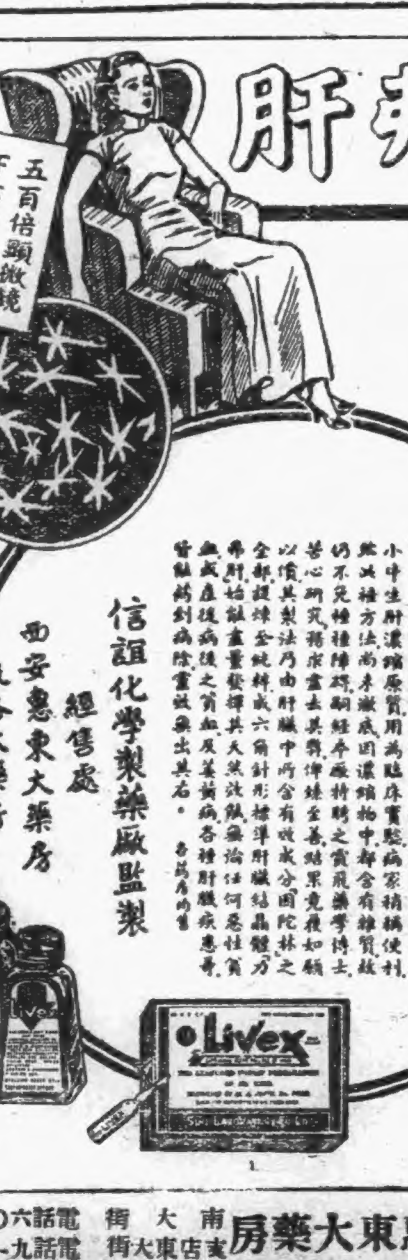 肝
五百倍顯微鏡
小中生肝濃縮原質用為臨床實驗,病家稍稱便利,
然此種方法尚未澈底因濃縮物中都含有雜質故
仍不免種種障碍,嗣經本廠特聘之霍飛藥學博士
苦心研究務求盡去其弊俾臻至善,結果竟獲如願
以償其製法乃由肝臟中所含有效成分因陀林之
全部提煉至純粹成六角針形標準肝臟結晶體乃
弗肝,始能盡量發揮其天然效能無論任何惡性貧
血或產後病後之貧血及萎黃病,各種肝臟疾患等,
皆能藥到病除靈效無出其右。 各藥房均售
信誼化學製藥廠監製
經售處
西安惠東大藥房
Livex
Livex
東大藥房
南大街 電話六〇
支店東大街 電話九